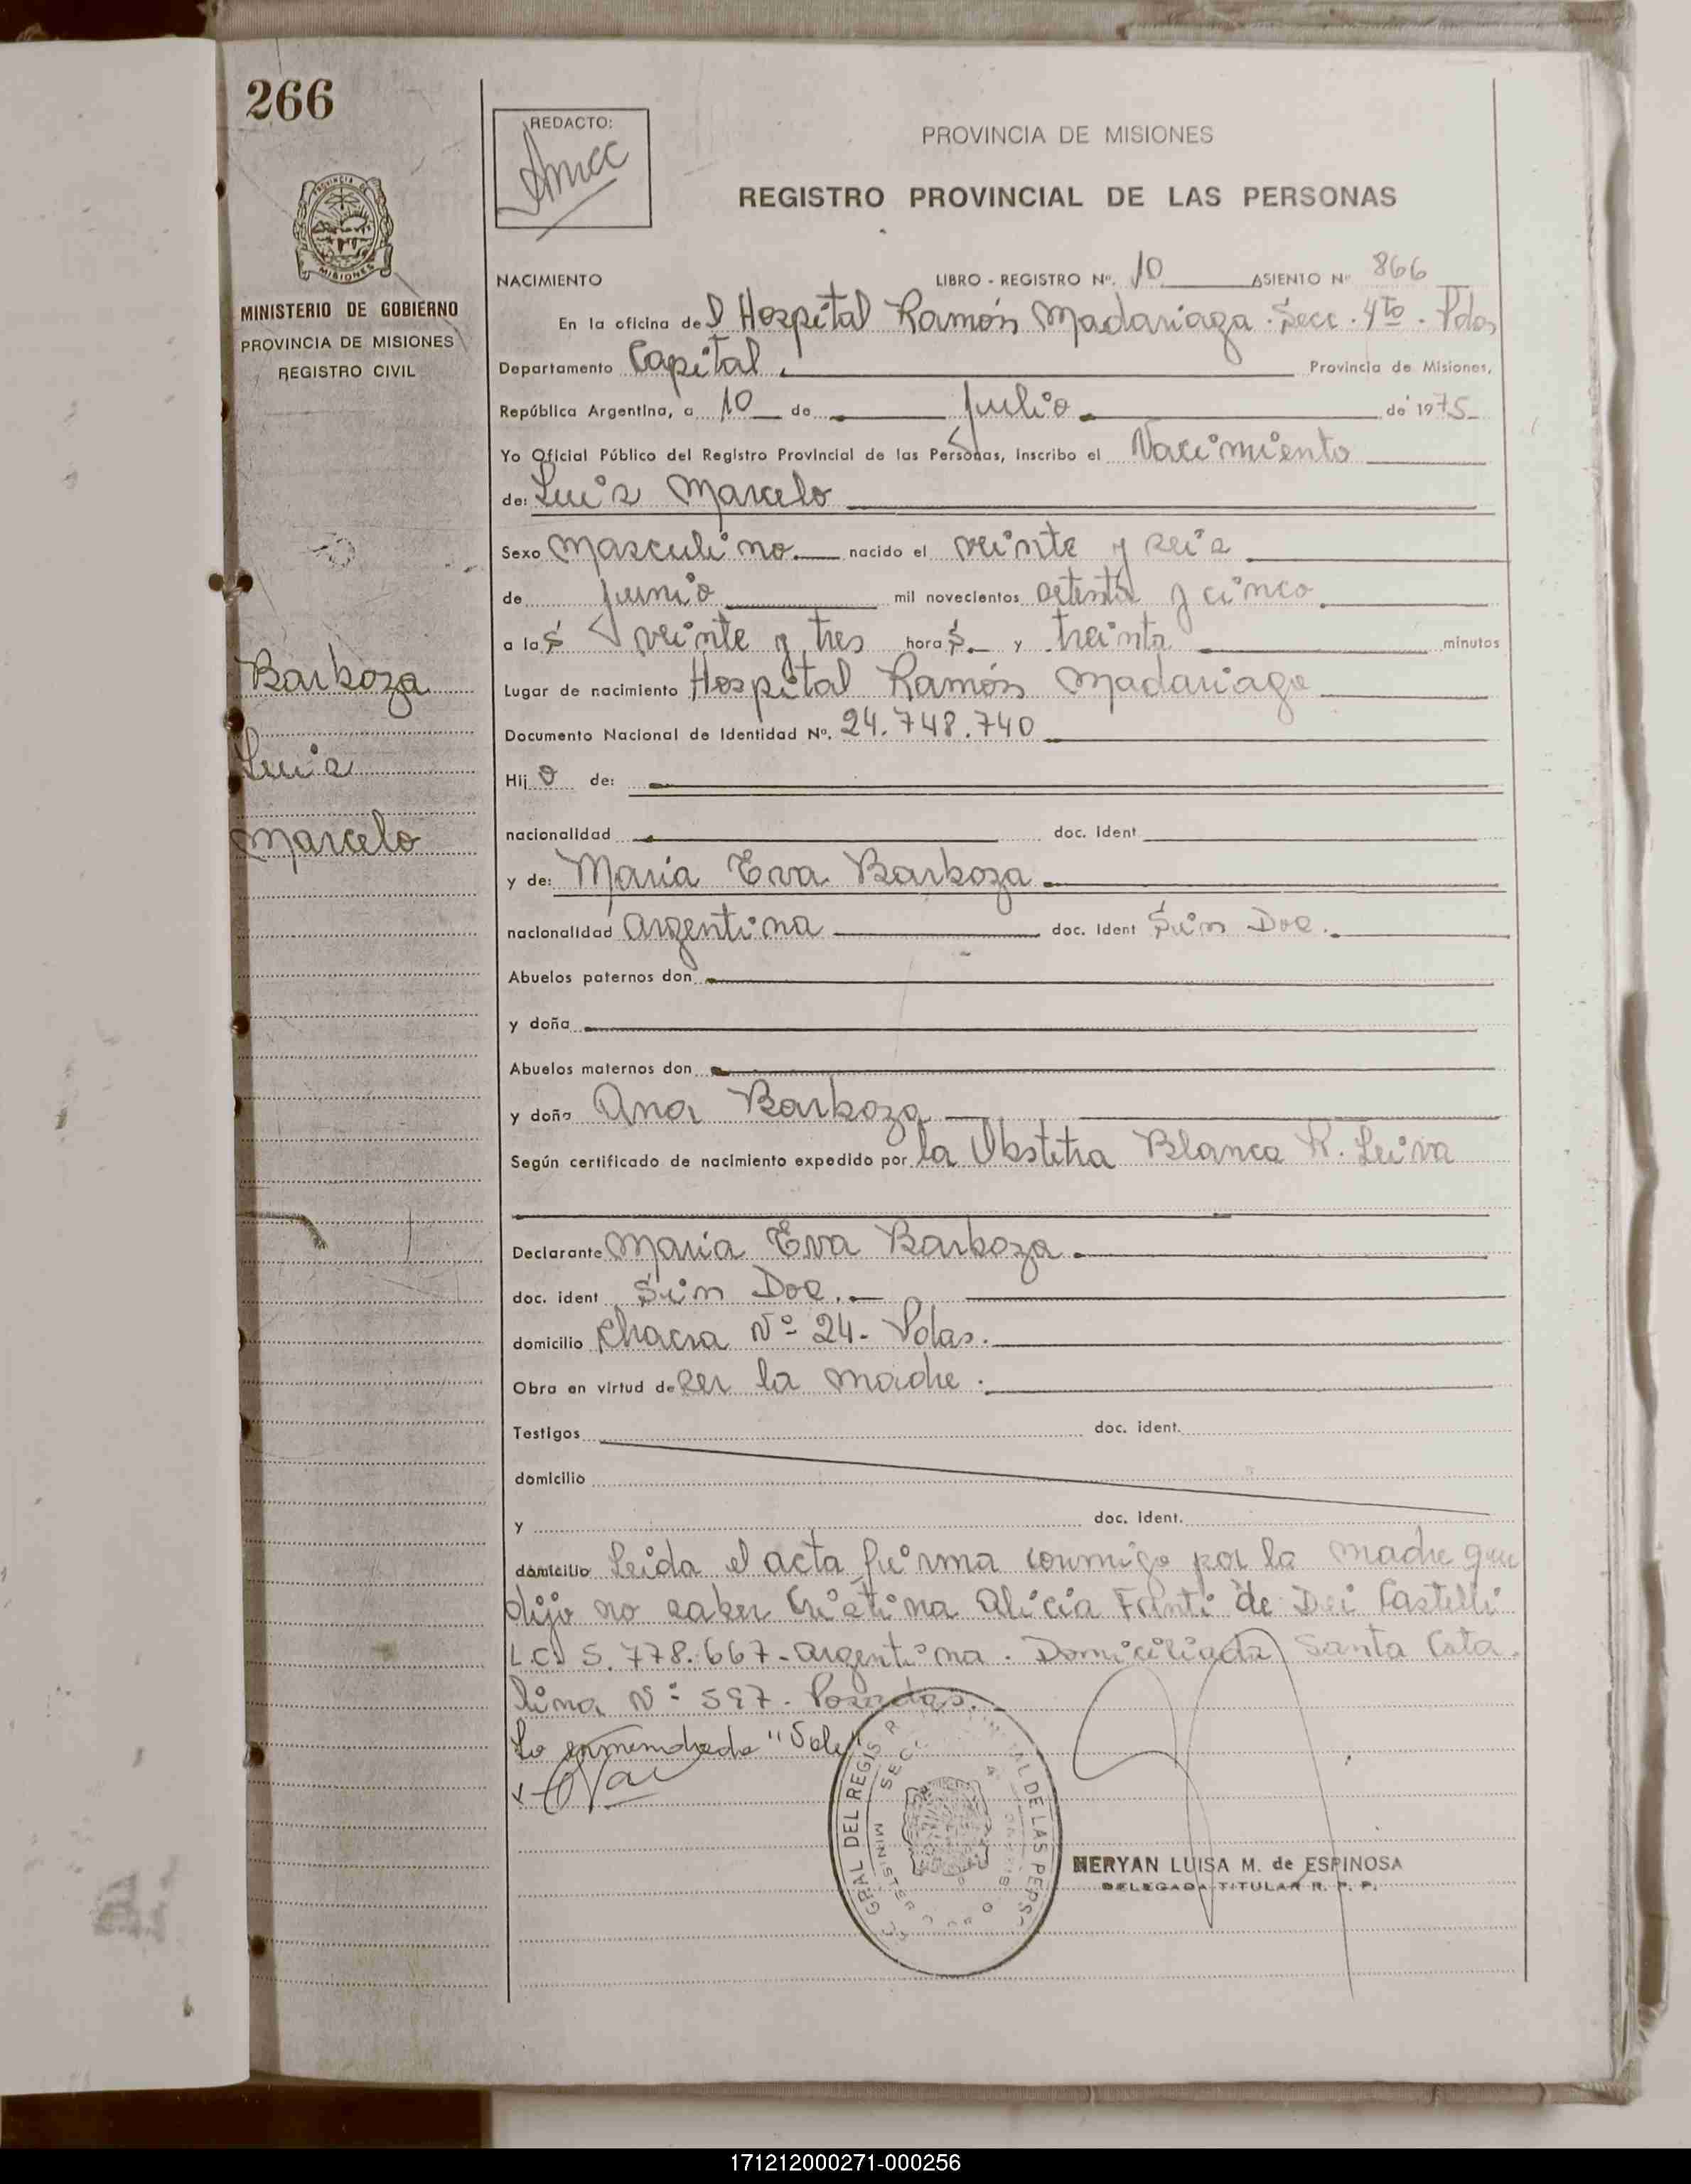 266
REDACTO:
PROVINCIA DE MISIONES
REGISTRO PROVINCIAL DE LAS PERSONAS
MISIONES
MINISTERIO DE GOBIERNO
PROVINCIA DE MISIONES
REGISTRO CIVIL
Barboza
Luis
Marcelo
NACIMIENTO LIBRO - REGISTRO Nº. 10 ASIENTO Nº 866
En la oficina del Hospital Ramón Madariaga. Secc. 4to. Pdas
Departamento Capital. Provincia de Misiones,
República Argentina, a 10 de julio de 1975
Yo Oficial Público del Registro Provincial de las Personas, inscribo el Nacimiento
de: Luis Marcelo
Sexo Masculino nacido el veinte y seis
de junio mil novecientos setenta y cinco
a las veinte y tres horas y treinta minutos
Lugar de nacimiento Hospital Ramón Madariaga
Documento Nacional de Identidad Nº. 24.748.740
Hijo de:
nacionalidad doc. ident
y de: Maria Eva Barboza
nacionalidad argentina doc. ident Sin Doc.
Abuelos paternos don
y doña
Abuelos maternos don
y doña Ana Barboza
Según certificado de nacimiento expedido por la Obstetra Blanca R. Leiva
Declarante Maria Eva Barboza
doc. ident Sin Doc.
domicilio Chacra Nº 24- Pdas.
Obra en virtud de ser la madre.
Testigos doc. ident.
domicilio
y doc. ident.
domicilio Leida el acta firma conmigo por la madre que
dijo no saber Cristina Alicia Fanti de Dei Castelli
L.C. 5.778.667- argentina. Domiciliada Santa Cata
lina Nº 597. Posadas.
Lo enmendado "Vale"
GRAL DEL REGIS DE LAS PERS
NERYAN LUISA M. de ESPINOSA
DELEGADA TITULAR R. P. P.
171212000271-000256